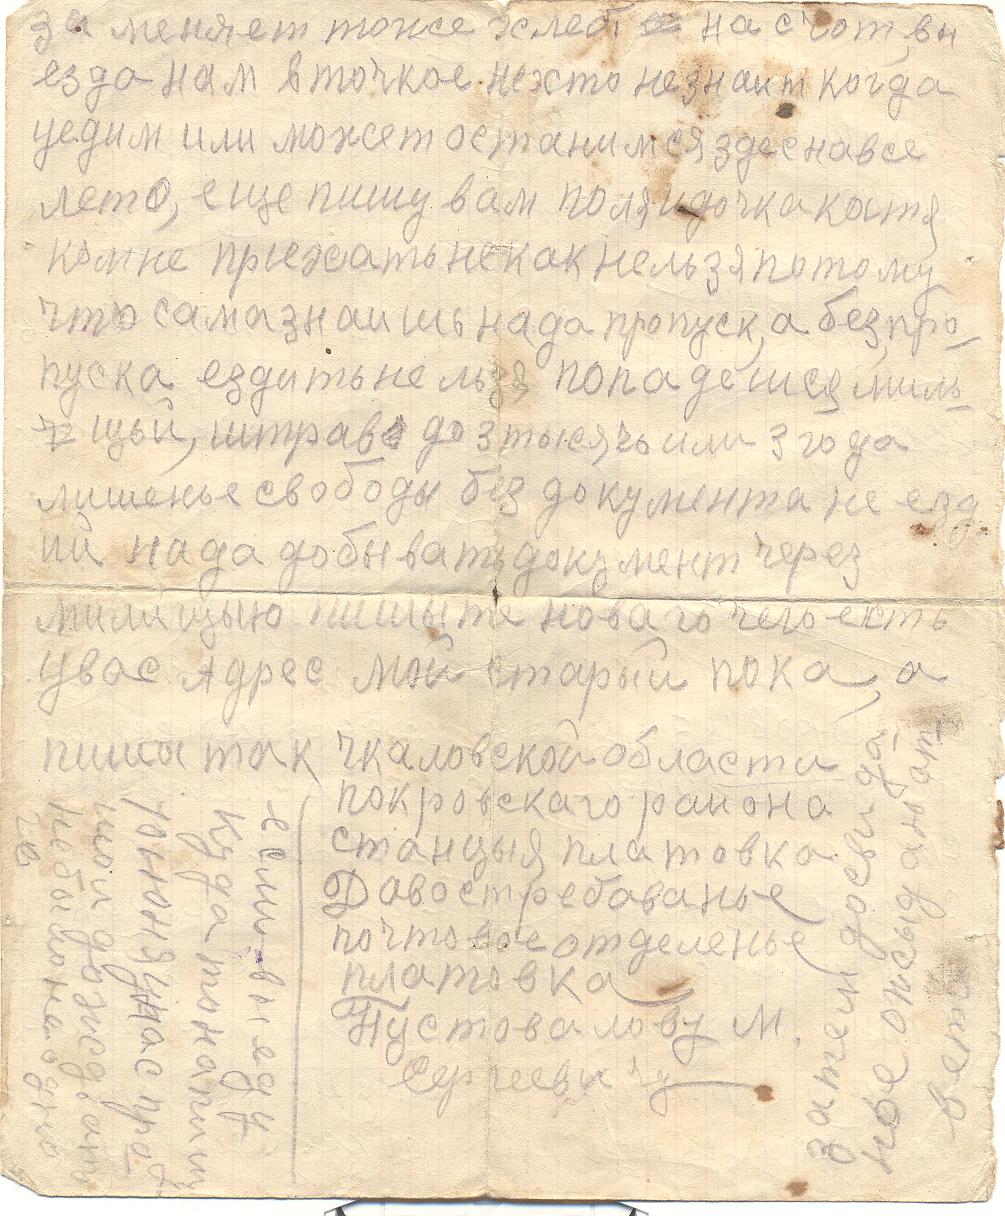 за меняет тоже хлеб на счот вы
езда нам в точкое нехто незнаит когда
уедим или может останимся здес на все
лето, еще пишу вам поля и дочка катя
комне приежать некак нельзя потому
что сама знаишь нада пропуск, а без, про-
пуска ездить нельзя попадешся миль-
ицый, штраф до 3 тысячь или 3 года
лишенье свободы без документа не езд-
ий нада добывать документ через
милицыю пишыте новаго чего есть
увас Адрес мой старый пока, а
пишы так чкаловской области
покровскаго района
станцыя платовка
Довостребаванье
почтовое отделенье
платовка
Пустовалову М.
Сергеевичу
затем досвида-
ное ожыданьи от-
вета
если-вы еду
куда то напиш
Юнюня унас про-
шол дождь
небыло на одно
го